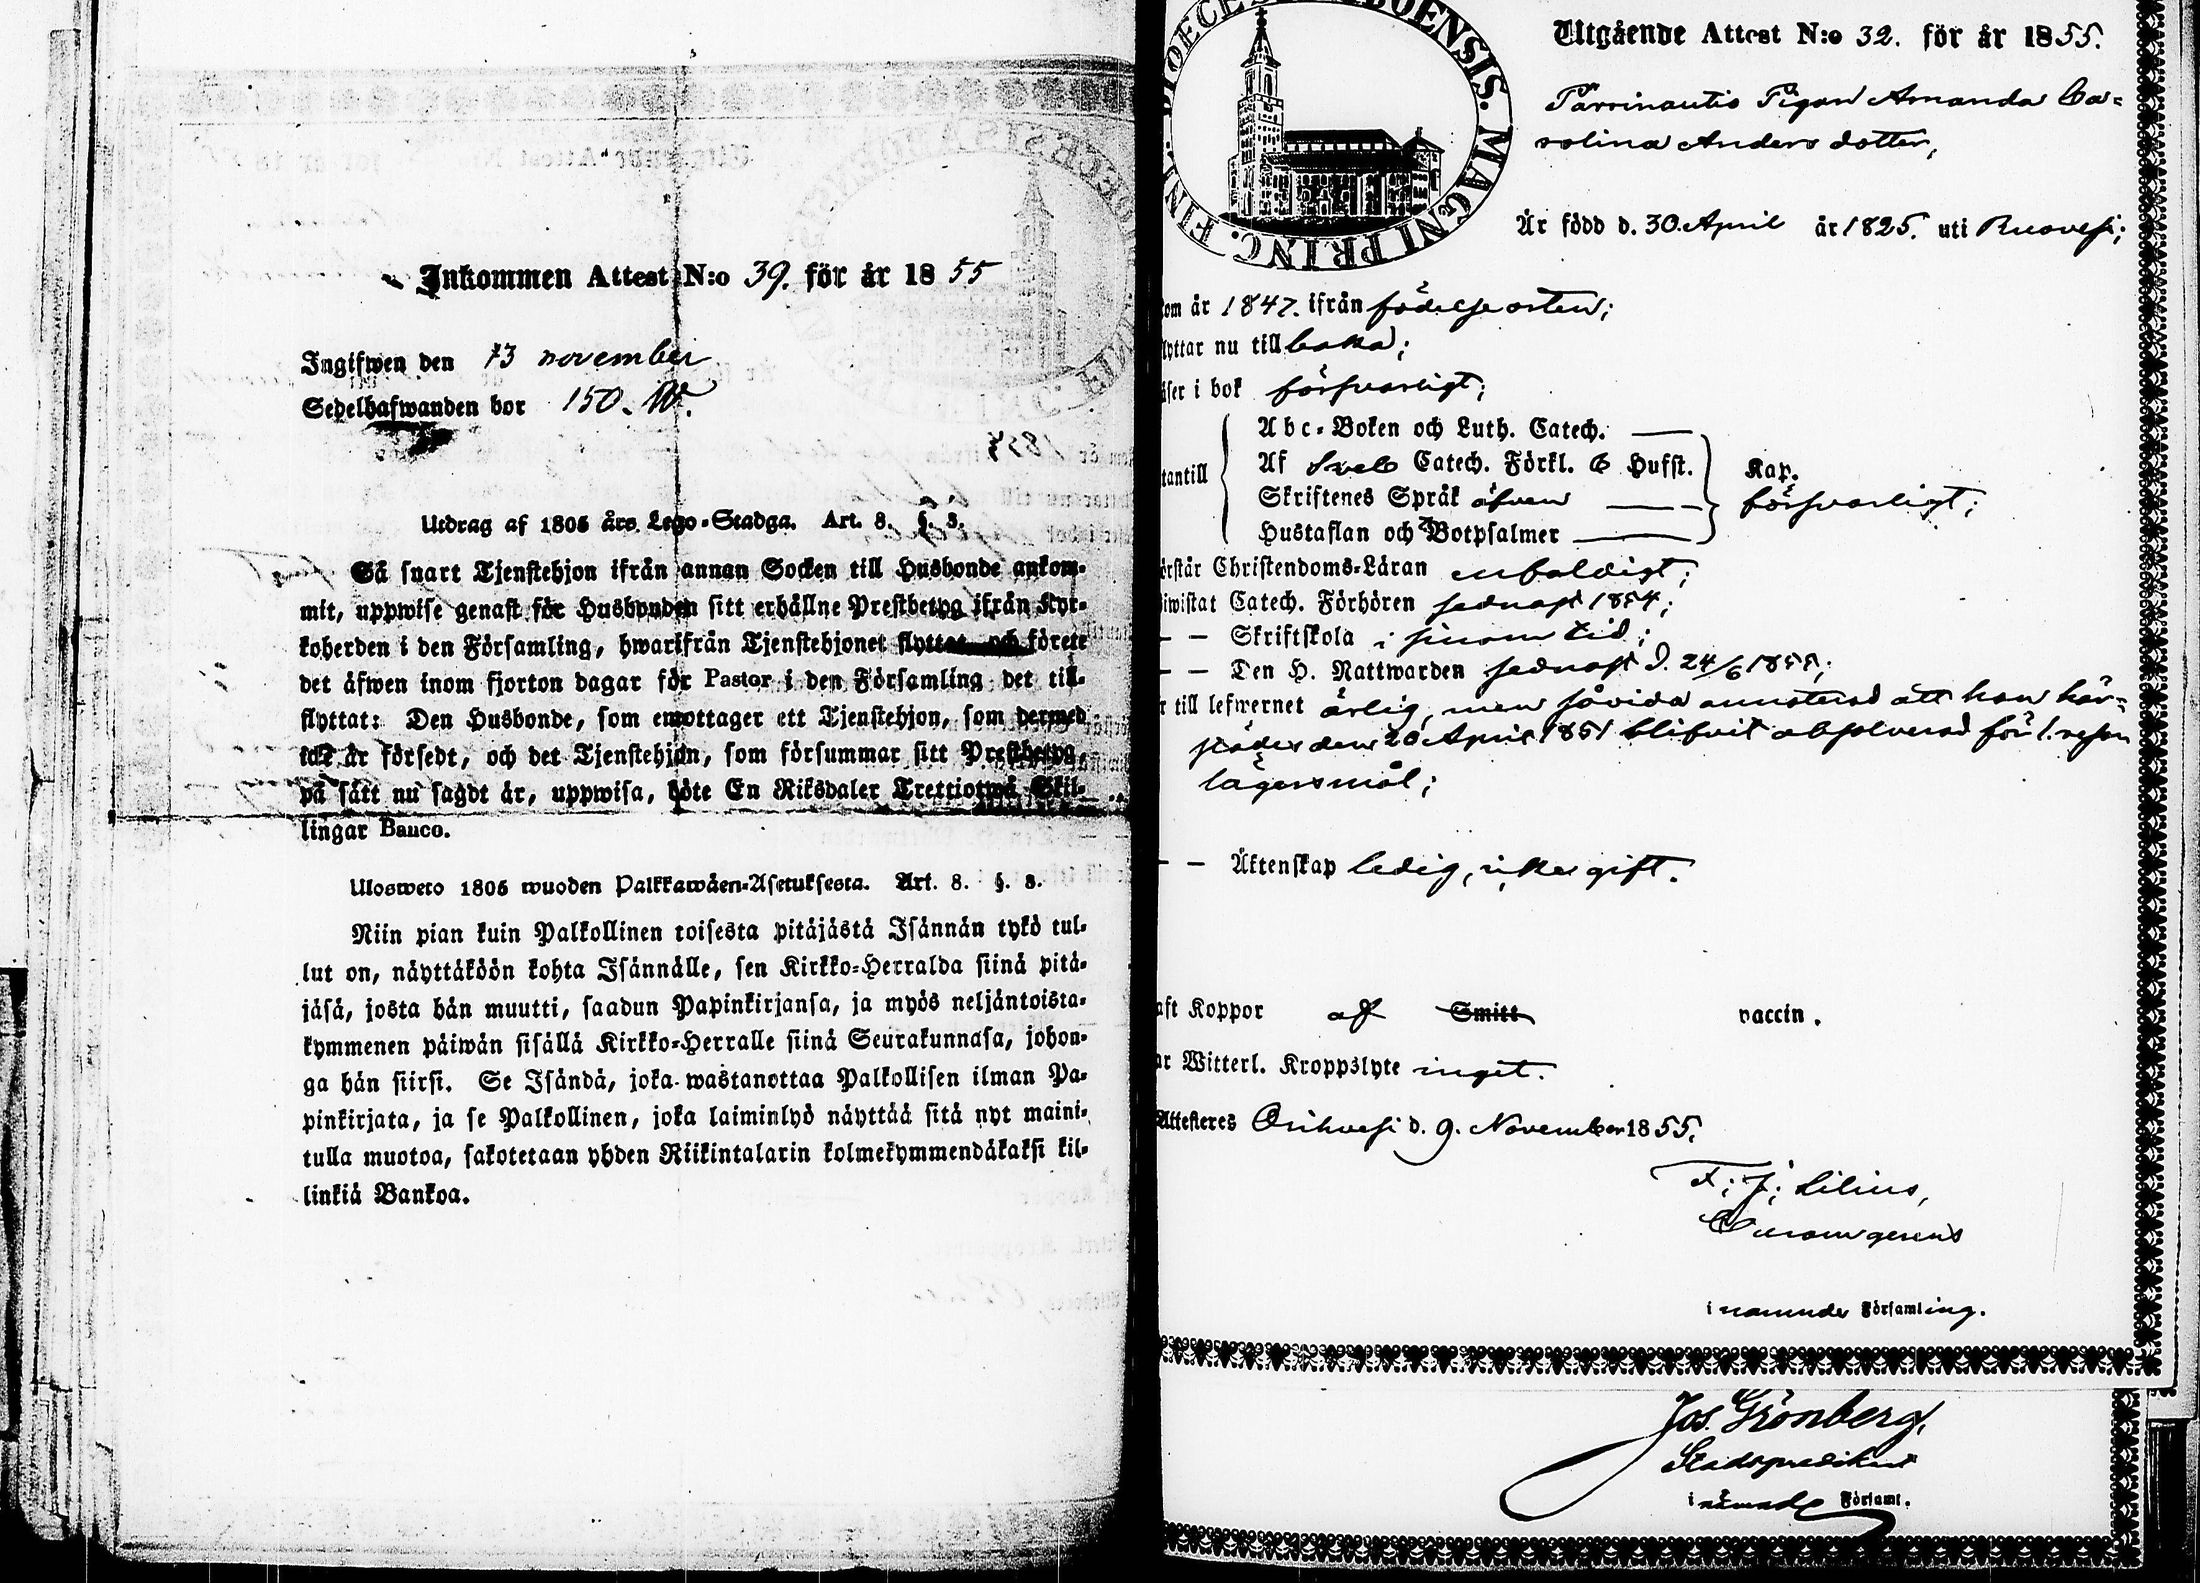 Inkommen Attest N:o 39. för år 1855
Ingifwen den 13 november
Sedelhafwanden bor 150. W.
Utdrag af 1805 års Lego-Stadga. Art. 8. §. 3.
Så snart Tjenstehjon ifrån annan Socken till Husbonde ankom-
mit, uppwise genast för Husbonden sitt erhållne Prestbetyg ifrån Kyr-
koherden i den Församling, hwarifrån Tjenstehjonet flyttat och förete
det äfwen inom fjorton dagar för Pastor i den Församling det till-
flyttat: Den Husbonde, som emottager ett Tjenstehjon, som dermed
icke är försedt, och det Tjenstehjon, som försummar sitt Prestbetyg,
på sätt nu sagdt är, uppwisa, böte En Riksdaler Trettiotwå Skil-
lingar Banco.
Ulosweto 1805 wuoden Palkkawäen-Asetuksesta. Art. 8. §. 3.
Niin pian kuin Palkollinen toisesta pitäjästä Isännän tykö tul-
lut on, näyttäköön kohta Isännälle, sen Kirkko-Herralda siinä pitä-
jäsä, josta hän muutti, saadun Papinkirjansa, ja myös neljäntoista-
kymmenen päiwän sisällä Kirkko-Herralle siinä Seurakunnasa, johon-
ga hän siirsi. Se Isändä, joka wastanottaa Palkollisen ilman Pa-
pinkirjata, ja se Palkollinen, joka laiminlyö näyttää sitä nyt maini-
tulla muotoa, sakotetaan yhden Riikintalarin kolmekymmendäkaksi kil-
linkiä Bankoa.
MAGNI PRINC. FINL.
Utgående Attest N:o 32. för år 1855.
Pigan Amanda Ca-
rolina Anders dotter,
Är född d. 30 April år 1825. uti Ruovesi;
om år 1847. ifrån födelse orten;
lyttar nu till baka;
äser i bok försvarligt;
Abc-Boken och Luth. Catech.
tantill Af Sveb Catech. Förkl. 6 Hufst. Kap.
Skriftenes Språk äfven försvarligt;
Hustaflan och Botpsalmer
örstår Christendoms-Läran enfaldigt;
iwistat Catech. Förhören sednast 1854;
— — Skriftskola i sinom tid;
— — Den H. Nattwarden sednast d. 24/6 1855;
r till lefwernet ärlig, men såvida annoterad att hon här-
städes den 20 April 1851 blifvit absolverad för 1. resan
lägersmål;
— — Äktenskap ledig, icke gift.
aft Koppor af Smitt vaccin.
ar Witterl. Kroppslyte inget.
Attesteres Orihvesi d. 9. November 1855.
F. J. Lilius,
i nämnde Församling.
Jos. Grönberg,
Stadspredikant
i nämnde Församl.